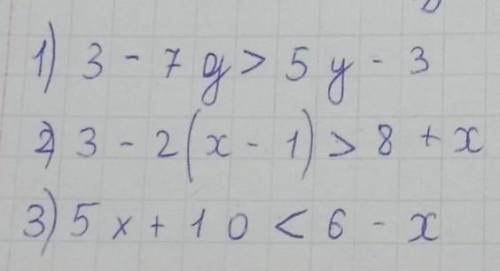 1) 3 - 7y > 5y - 3
2) 3 - 2(x - 1) > 8 + x
3) 5x + 10 < 6 - x